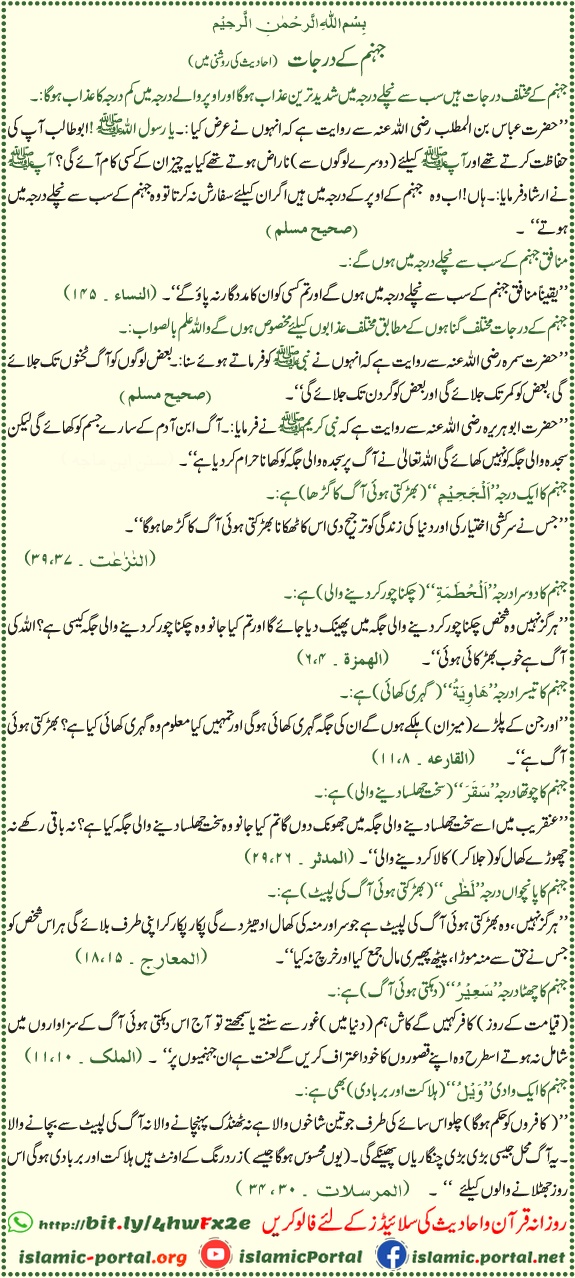 بِسْمِ اللهِ الرَّحْمٰنِ الرَّحِيْمِ
جہنم کے درجات (احادیث کی روشنی میں)
جہنم کے مختلف درجات ہیں سب سے نچلے درجہ میں شدید ترین عذاب ہوگا اور اوپر والے درجہ میں کم درجہ کا عذاب ہوگا:۔
’’حضرت عباس بن المطلب رضی اللہ عنہ سے روایت ہے کہ انہوں نے عرض کیا:۔ یا رسول اللہ ﷺ! ابوطالب آپ کی
حفاظت کرتے تھے اور آپ ﷺ کیلئے (دوسرے لوگوں سے) ناراض ہوتے تھے کیا یہ چیز ان کے کسی کام آئے گی؟ آپ ﷺ
نے ارشاد فرمایا:۔ ہاں! اب وہ جہنم کے اوپر کے درجہ میں ہیں اگر ان کیلئے سفارش نہ کرتا تو وہ جہنم کے سب سے نچلے درجہ میں
ہوتے‘‘ ۔ (صحیح مسلم)
منافق جہنم کے سب سے نچلے درجہ میں ہوں گے:۔
’’یقیناً منافق جہنم کے سب سے نچلے درجہ میں ہوں گے اور تم کسی کو ان کا مددگار نہ پاؤ گے‘‘۔ (النساء ۔ ۱۴۵)
جہنم کے درجات مختلف گناہوں کے مطابق مختلف عذابوں کیلئے مخصوص ہوں گے واللہ علم بالصواب:۔
’’حضرت سمرہ رضی اللہ عنہ سے روایت ہے کہ انہوں نے نبی ﷺ کو فرماتے ہوئے سنا:۔ بعض لوگوں کو آگ ٹخنوں تک جلائے
گی، بعض کو کمر تک جلائے گی اور بعض کو گردن تک جلائے گی‘‘۔ (صحیح مسلم)
’’حضرت ابوہریرہ رضی اللہ عنہ سے روایت ہے کہ نبی کریم ﷺ نے فرمایا:۔ آگ ابن آدم کے سارے جسم کو کھائے گی لیکن
سجدہ والی جگہ کو نہیں کھائے گی اللہ تعالیٰ نے آگ پر سجدہ والی جگہ کو کھانا حرام کر دیا ہے‘‘۔
جہنم کا ایک درجہ ’’اَلْجَحِيْمِ‘‘ (بھڑکتی ہوئی آگ کا گڑھا) ہے:۔
’’جس نے سرکشی اختیار کی اور دنیا کی زندگی کو ترجیح دی اس کا ٹھکانا بھڑکتی ہوئی آگ کا گڑھا ہوگا‘‘۔
(النٰزعٰت ۔ ۳۹،۳۷)
جہنم کا دوسرا درجہ ’’اَلْحُطَمَةِ‘‘ (چکنا چور کر دینے والی) ہے:۔
’’ہرگز نہیں وہ شخص چکنا چور کر دینے والی جگہ میں پھینک دیا جائے گا اور تم کیا جانو وہ چکنا چور کر دینے والی جگہ کیسی ہے؟ اللہ کی
آگ ہے خوب بھڑکائی ہوئی‘‘۔ (الھمزة ۔ ۶،۴)
جہنم کا تیسرا درجہ ’’هَاوِيَةُ‘‘ (گہری کھائی) ہے:۔
’’اور جن کے پلڑے (میزان) ہلکے ہوں گے ان کی جگہ گہری کھائی ہوگی اور تمہیں کیا معلوم وہ گہری کھائی کیا ہے؟ بھڑکتی ہوئی
آگ ہے‘‘۔ (القارعه ۔ ۱۱،۸)
جہنم کا چوتھا درجہ ’’سَقَرَ‘‘ (سخت جھلسا دینے والی) ہے:۔
’’عنقریب میں اسے سخت جھلسا دینے والی جگہ میں جھونک دوں گا تم کیا جانو وہ سخت جھلسا دینے والی جگہ کیا ہے؟ نہ باقی رکھے نہ
چھوڑے کھال کو (جلا کر) کالا کر دینے والی‘‘۔ (المدثر ۔ ۲۹،۲۶)
جہنم کا پانچواں درجہ ’’لَظٰى‘‘ (بھڑکتی ہوئی آگ کی لپیٹ) ہے:۔
’’ہرگز نہیں، وہ بھڑکتی ہوئی آگ کی لپیٹ ہے جو سر اور منہ کی کھال ادھیڑ دے گی پکار پکار کر اپنی طرف بلائے گی ہر اس شخص کو
جس نے حق سے منہ موڑا، پیٹھ پھیری مال جمع کیا اور خرچ نہ کیا‘‘۔ (المعارج ۔ ۱۸،۱۵)
جہنم کا چھٹا درجہ ’’سَعِيْرُ‘‘ (دہکتی ہوئی آگ) ہے:۔
(قیامت کے روز) کافر کہیں گے کاش ہم (دنیا میں) غور سے سنتے یا سمجھتے تو آج اس دہکتی ہوئی آگ کے سزاواروں میں
شامل نہ ہوتے اسطرح وہ اپنے قصوروں کا خود اعتراف کریں گے لعنت ہے ان جہنمیوں پر‘‘ ۔ (الملک ۔ ۱۱،۱۰)
جہنم کا ایک وادی ’’وَيْلُ‘‘ (ہلاکت اور بربادی) بھی ہے:۔
’’(کافروں کو حکم ہوگا) چلو اس سائے کی طرف جو تین شاخوں والا ہے نہ ٹھنڈک پہنچانے والا نہ آگ کی لپیٹ سے بچانے والا
۔ یہ آگ محل جیسی بڑی بڑی چنگاریاں پھینکے گی۔ (یوں محسوس ہوگا جیسے) زرد رنگ کے اونٹ ہیں ہلاکت اور بربادی ہوگی اس
روز جھٹلانے والوں کیلئے ‘‘ ۔ (المرسلات ۔ ۳۴،۳۰)
روزانہ قرآن و احادیث کی سلائیڈز کے لئے فالو کریں http://bit.ly/4hwFx2e
islamic-portal.org islamicPortal islamic.portal.net